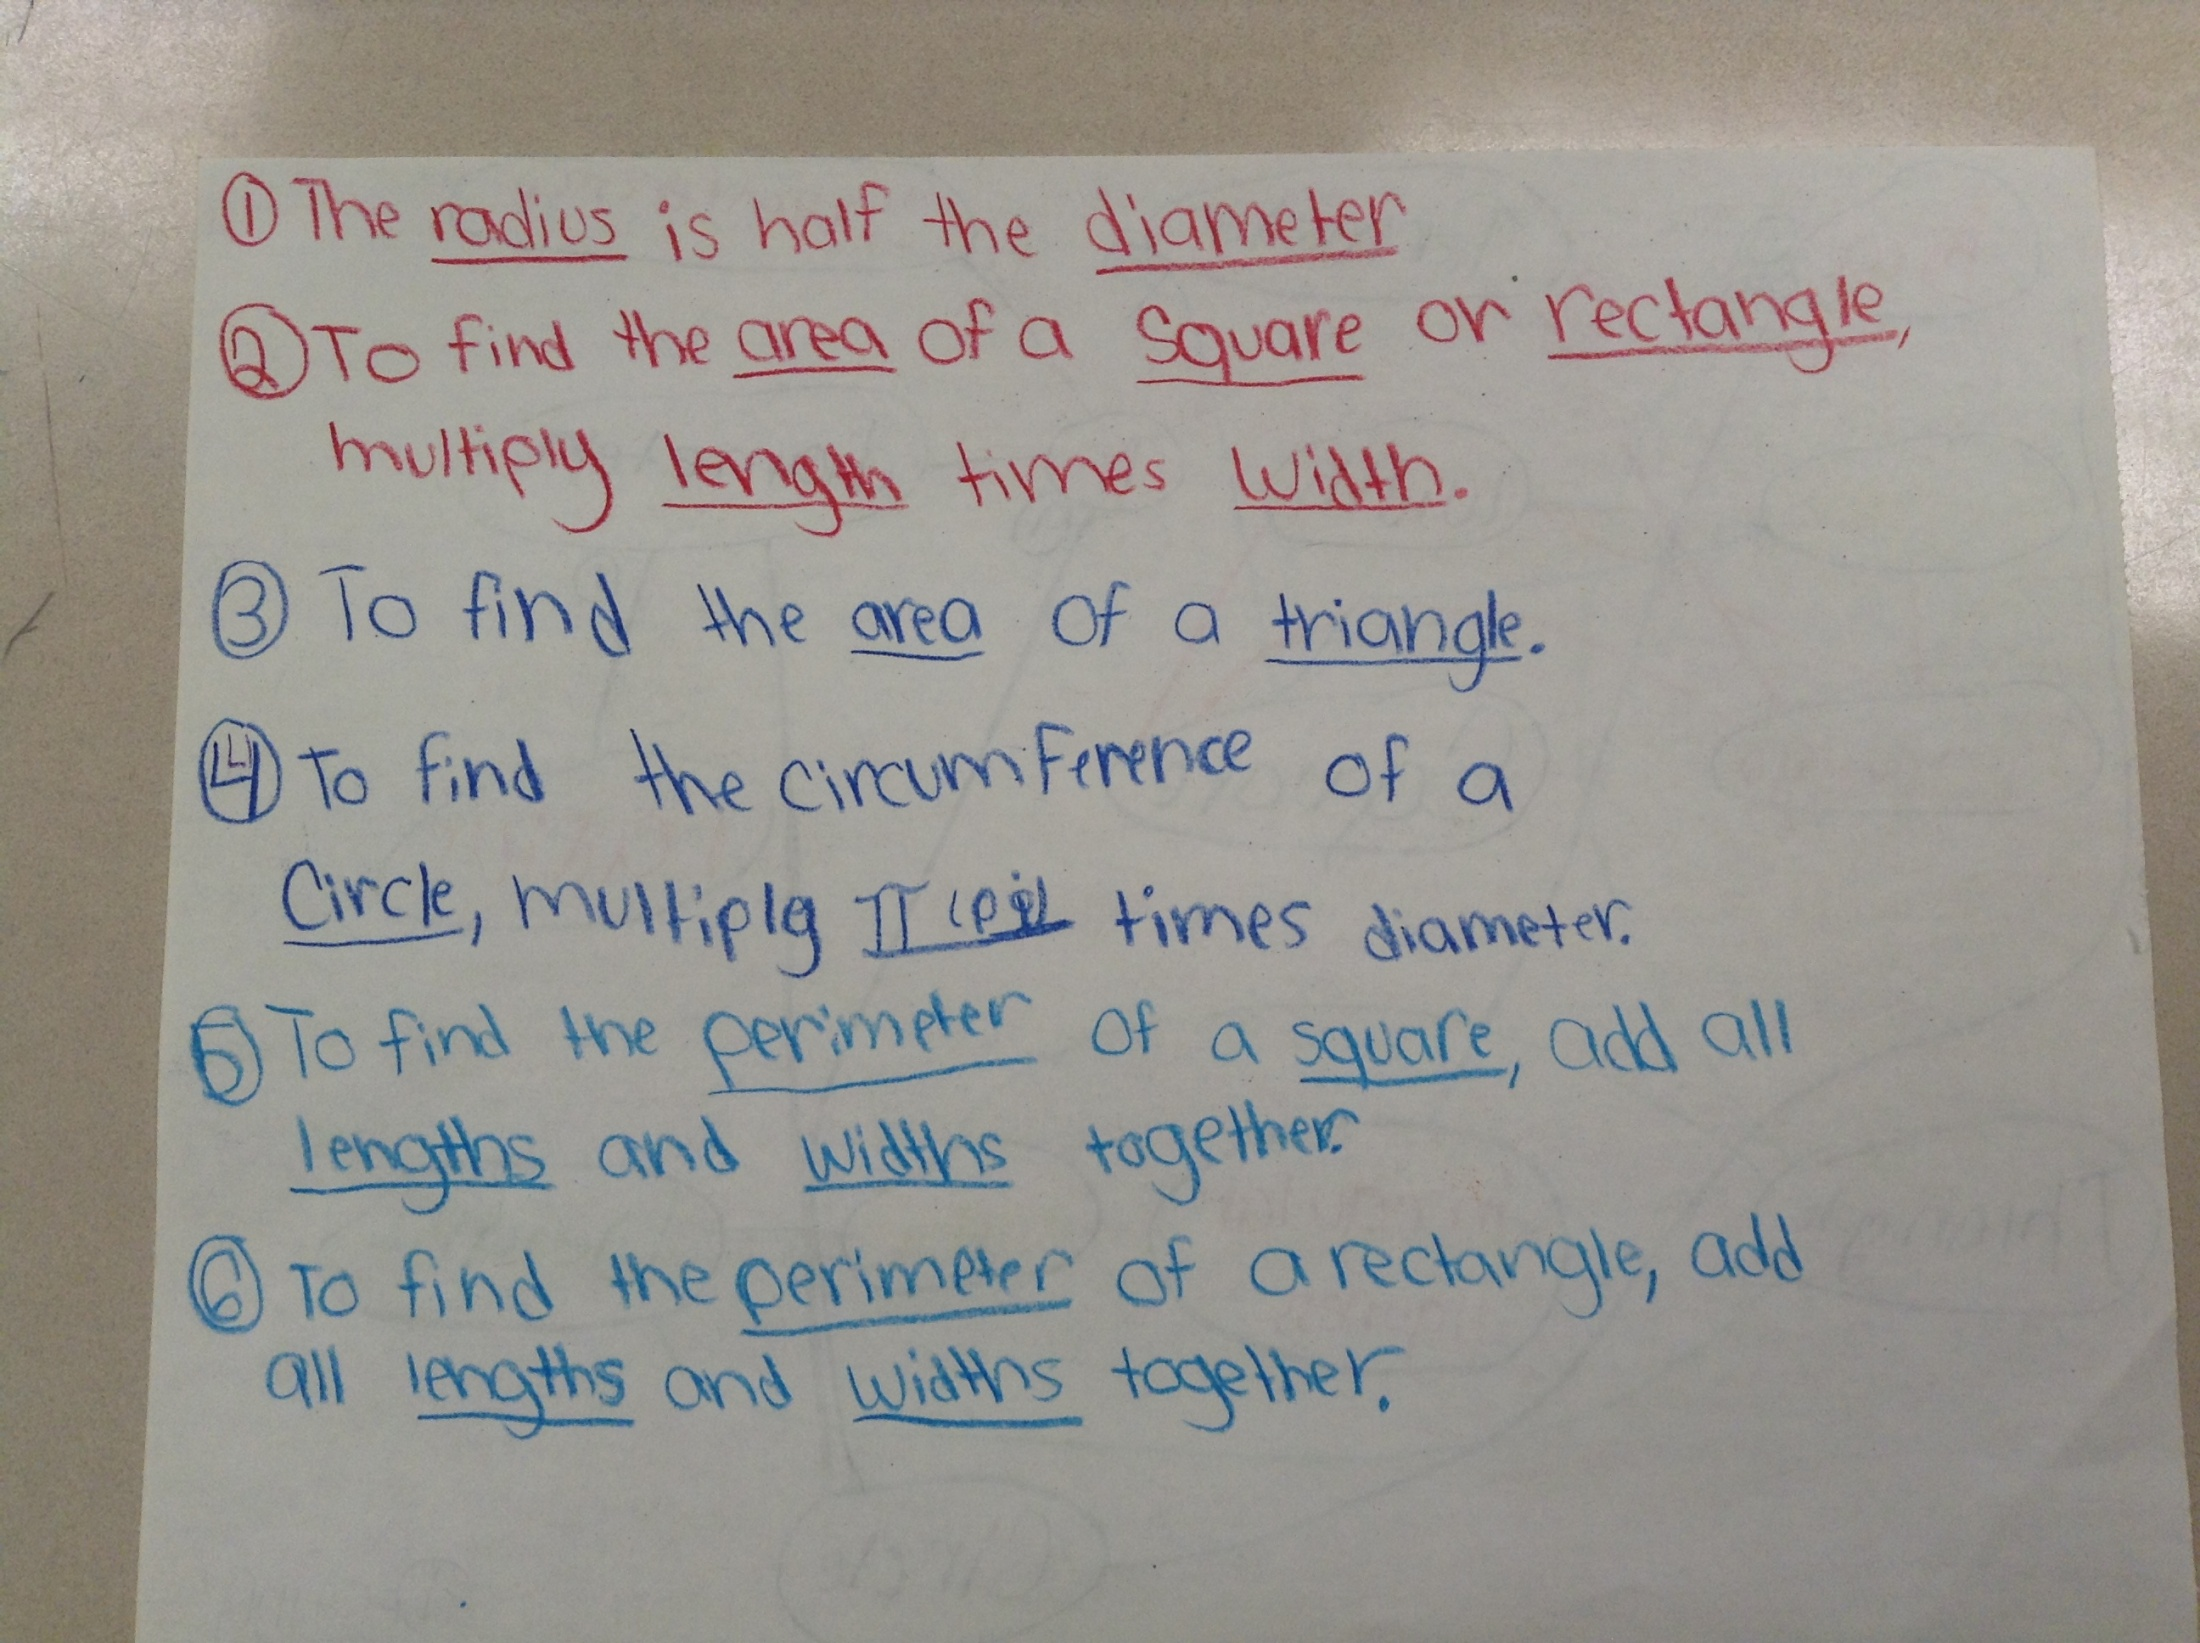 ① The radius is half the diameter
② To find the area of a Square or rectangle,
multiply length times width.
③ To find the area of a triangle.
④ To find the circumference of a
Circle, multiply π (pi) times diameter.
⑤ To find the perimeter of a square, add all
lengths and widths together.
⑥ To find the perimeter of a rectangle, add
all lengths and widths together.